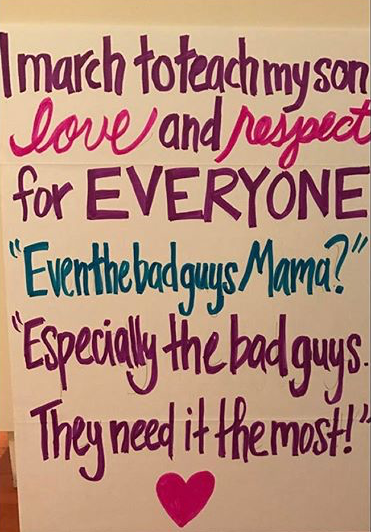 I march to teach my son
love and respect
for EVERYONE
"Even the bad guys Mama?"
"Especially the bad guys.
They need it the most!"